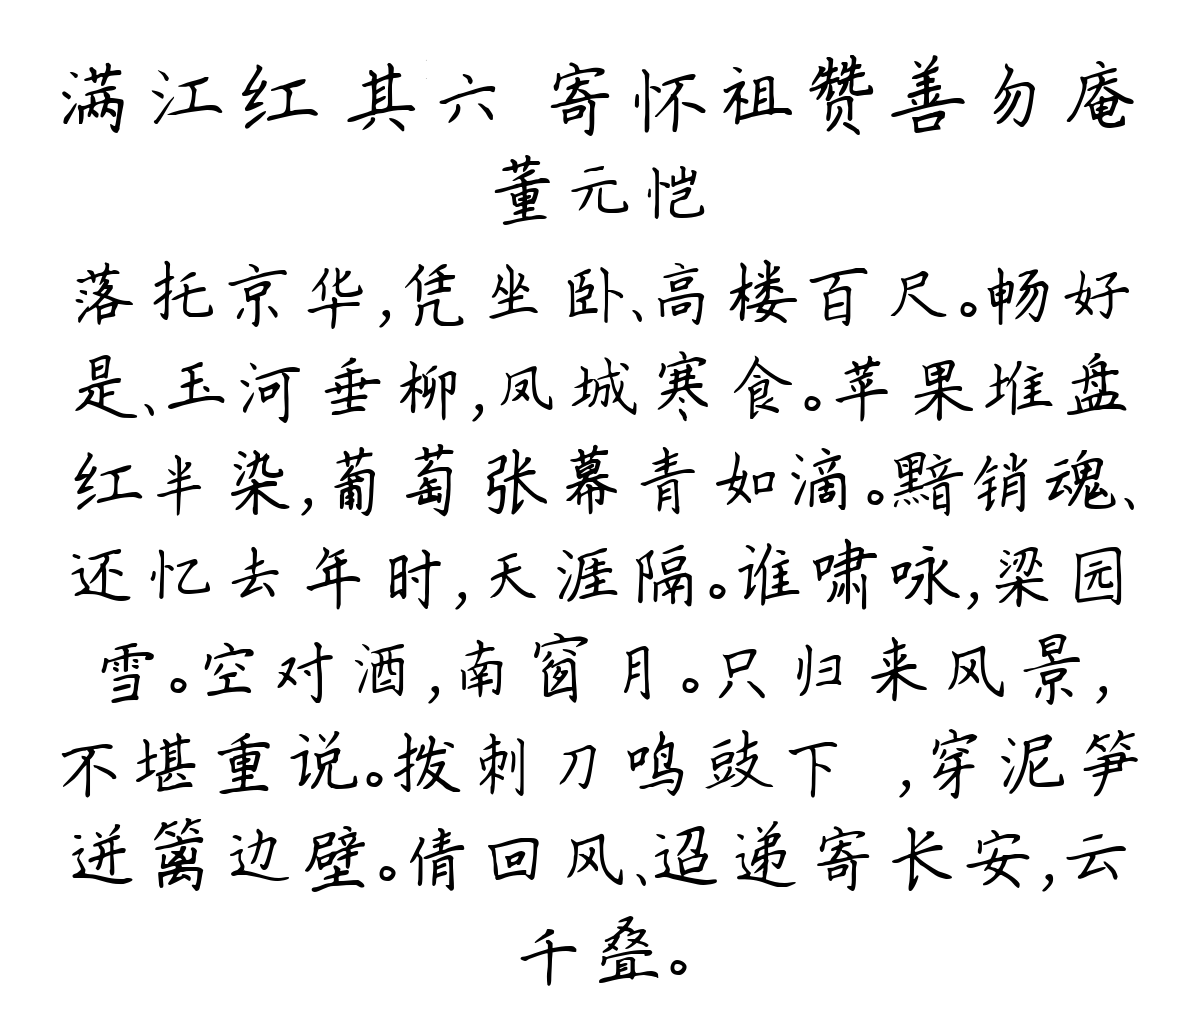 满江红 其六 寄怀祖赞善勿庵
董元恺
落托京华,凭坐卧、高楼百尺。畅好
是、玉河垂柳,凤城寒食。苹果堆盘
红半染,葡萄张幕青如滴。黯销魂、
还忆去年时,天涯隔。谁啸咏,梁园
雪。空对酒,南窗月。只归来风景,
不堪重说。拨刺刀鸣豉下 ,穿泥笋
迸篱边壁。倩回风、迢递寄长安,云
千叠。